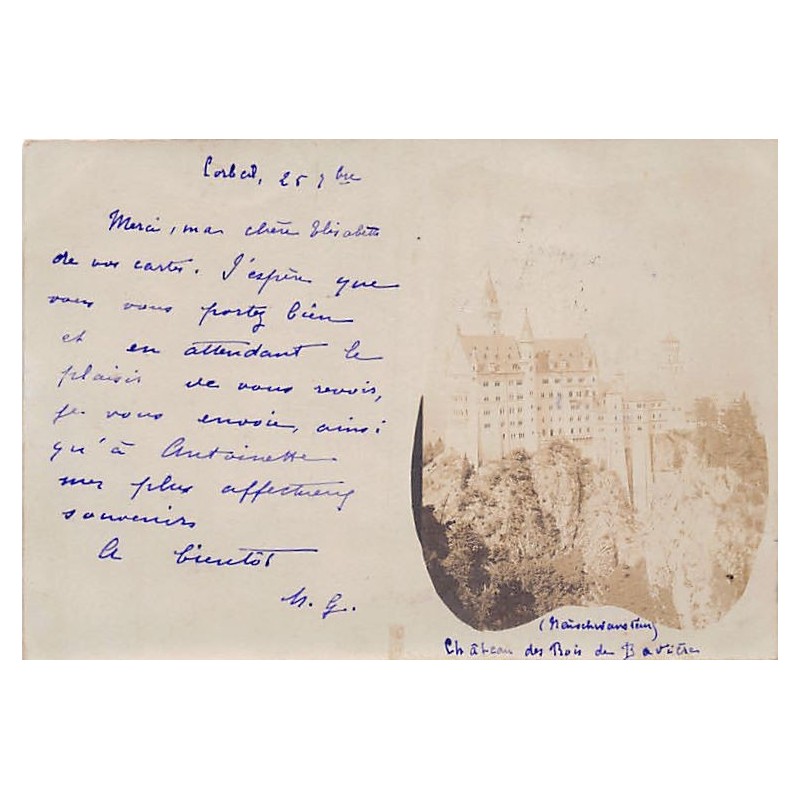 Corbeil, 25 7bre
Merci, ma chère Elisabeth
de vos cartes. J'espère que
vous vous portez bien
et en attendant le
plaisir de vous revoir,
je vous envoie, ainsi
qu'à Antoinette
mes plus affectueux
souvenirs
A bientôt
M. G.
(Neuschwanstein)
Château des Rois de Bavière